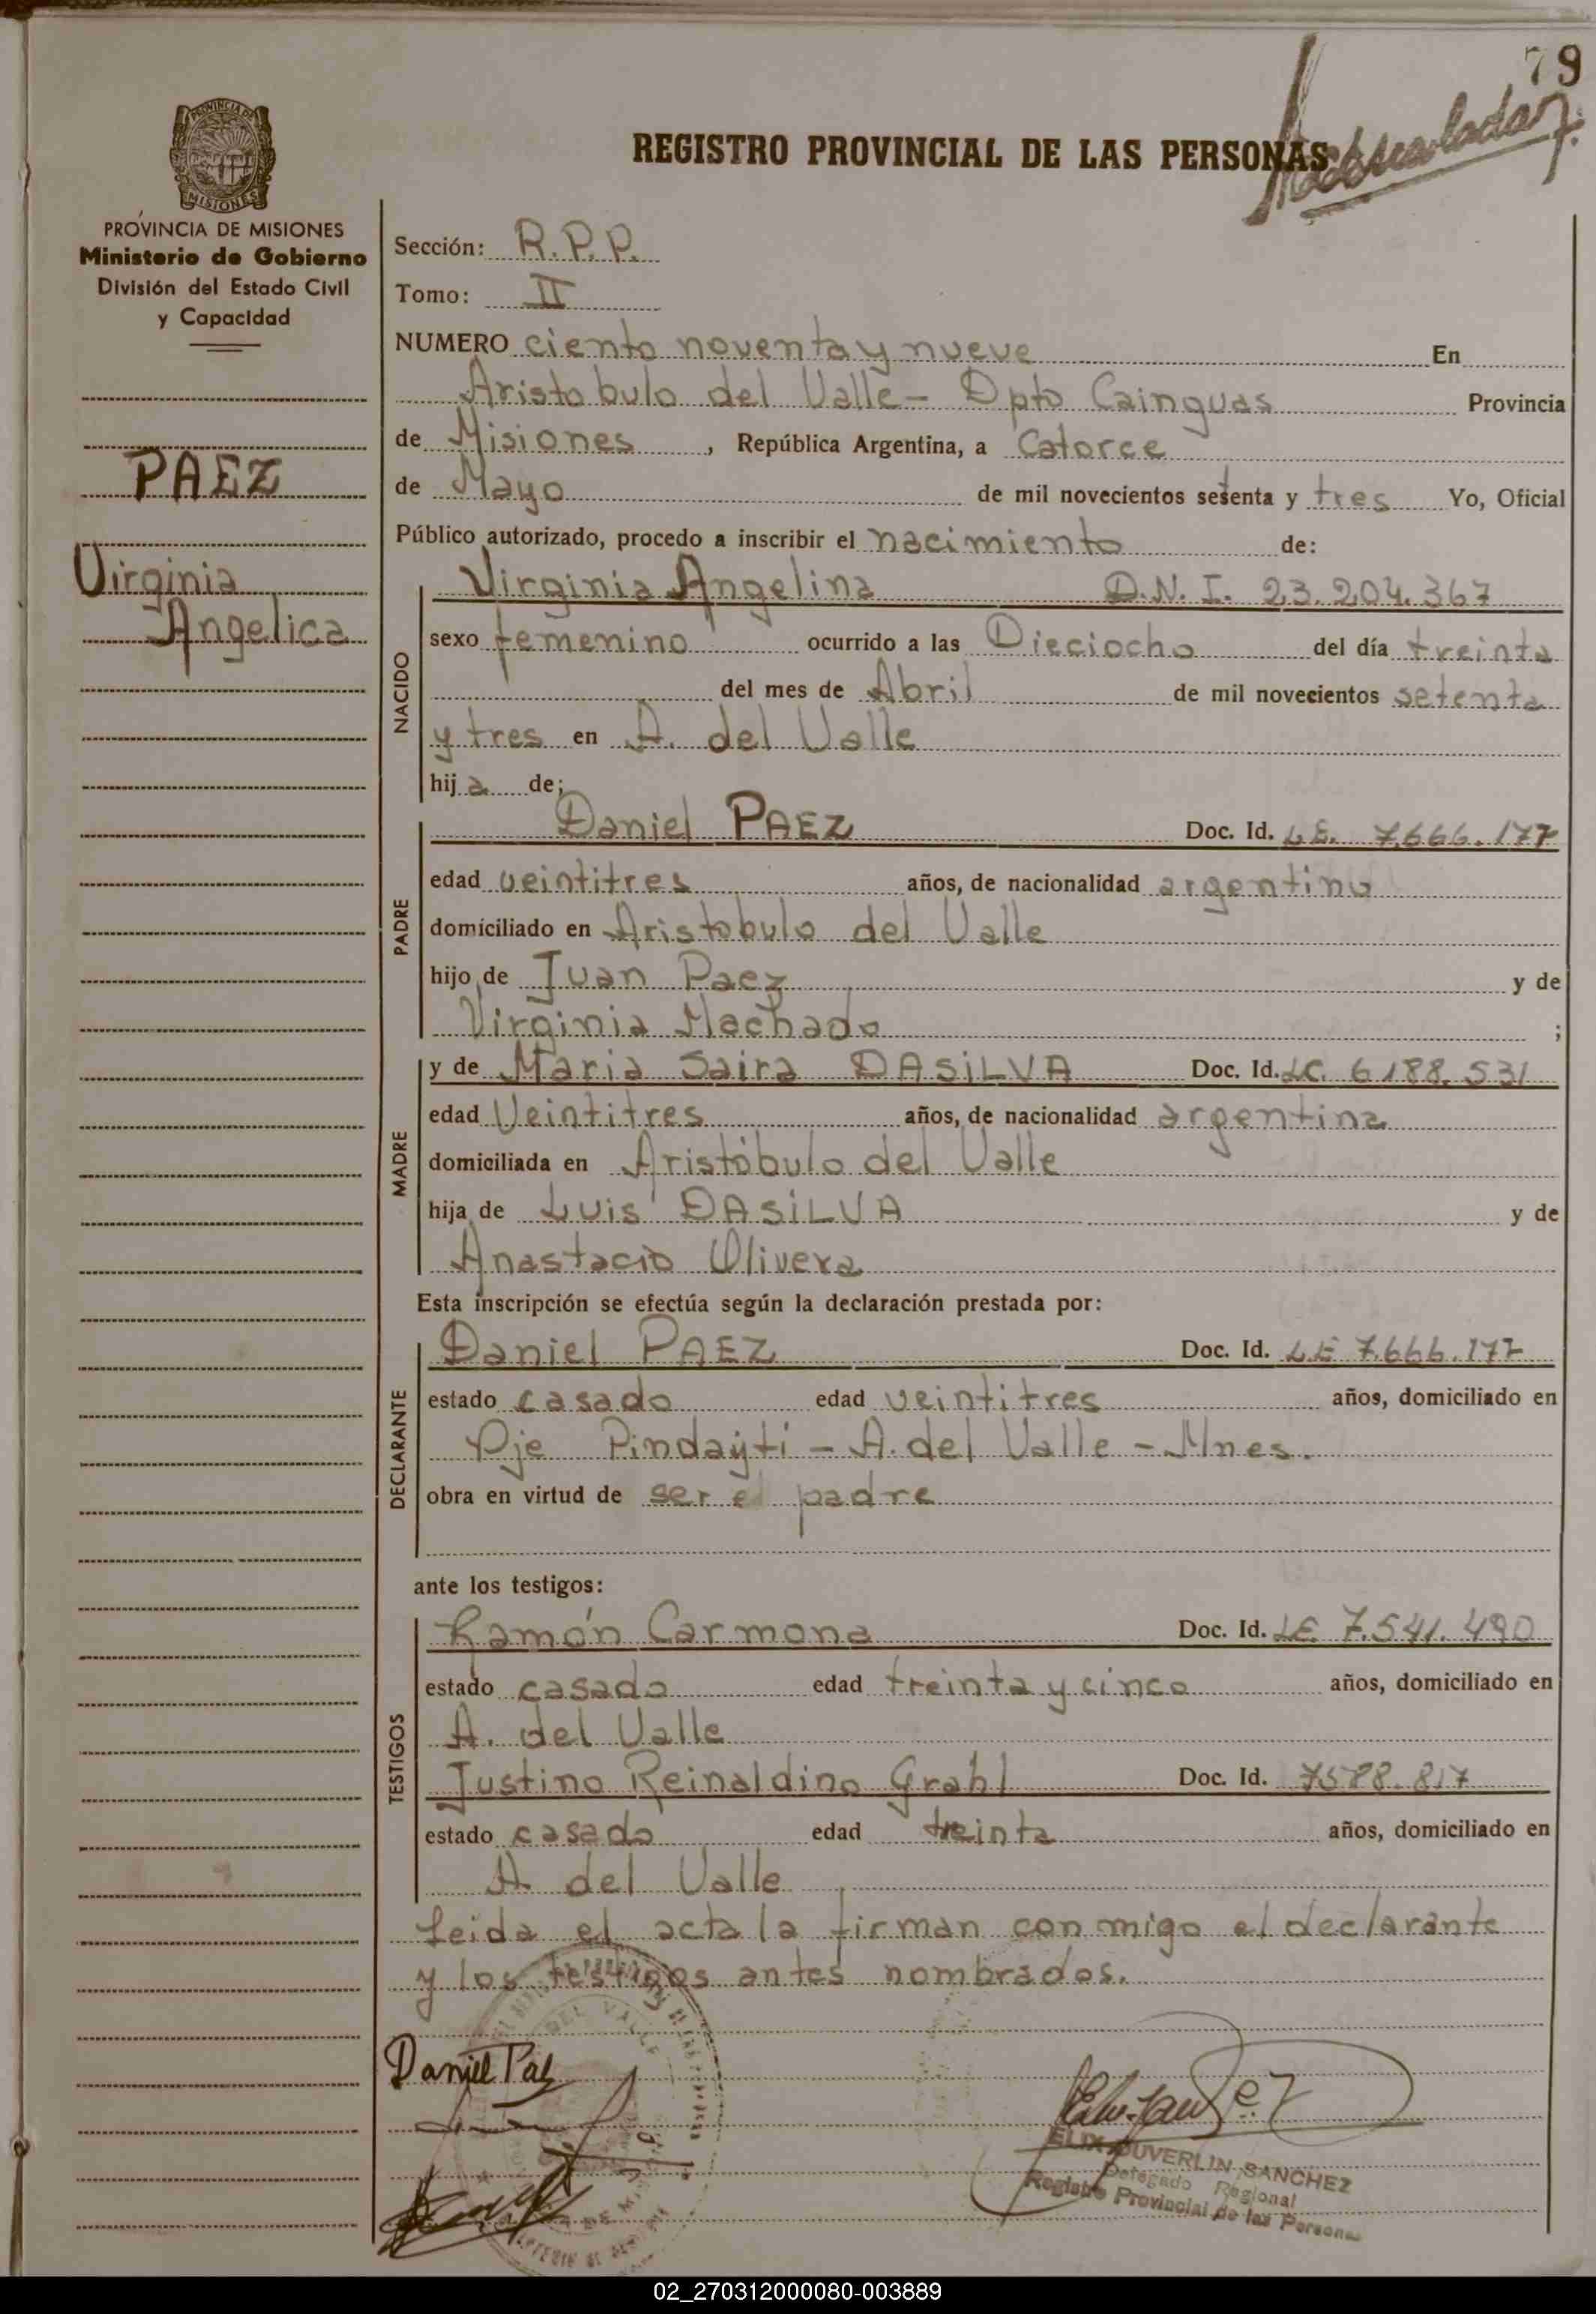 79
REGISTRO PROVINCIAL DE LAS PERSONAS
PROVINCIA DE MISIONES
Ministerio de Gobierno
División del Estado Civil
y Capacidad
PAEZ
Virginia
Angelica
Sección: R.P.P.
Tomo: II
NUMERO ciento noventa y nueve En
Aristobulo del Valle - Dpto Cainguas Provincia
de Misiones, República Argentina, a Catorce
de Mayo de mil novecientos setenta y tres Yo, Oficial
Público autorizado, procedo a inscribir el nacimiento de:
NACIDO
Virginia Angelina D.N.I. 23.204.367
sexo femenino ocurrido a las Dieciocho del día treinta
del mes de Abril de mil novecientos setenta
y tres en A. del Valle
hija de:
PADRE
Daniel PAEZ Doc. Id. L.E. 7.666.177
edad veintitres años, de nacionalidad argentino
domiciliado en Aristobulo del Valle
hijo de Juan Paez y de
Virginia Machado ;
MADRE
y de Maria Saira DASILVA Doc. Id. LC. 6188.531
edad Veintitres años, de nacionalidad argentina
domiciliada en Aristóbulo del Valle
hija de Luis DASILVA y de
Anastacio Olivera
Esta inscripción se efectúa según la declaración prestada por:
DECLARANTE
Daniel PAEZ Doc. Id. L.E 7.666.177
estado casado edad veintitres años, domiciliado en
Pje Pindayti - A. del Valle - Mnes.
obra en virtud de ser el padre
ante los testigos:
TESTIGOS
Ramón Carmona Doc. Id. LE. 7.541.490
estado casado edad treinta y cinco años, domiciliado en
A. del Valle
Justino Reinaldino Grahl Doc. Id. 7588.817
estado casado edad treinta años, domiciliado en
A del Valle
Leida el acta la firman conmigo el declarante
y los testigos antes nombrados.
Daniel Paez
ELIX DUVERLIN SANCHEZ
Delegado Regional
Registro Provincial de las Personas
02_270312000080-003889